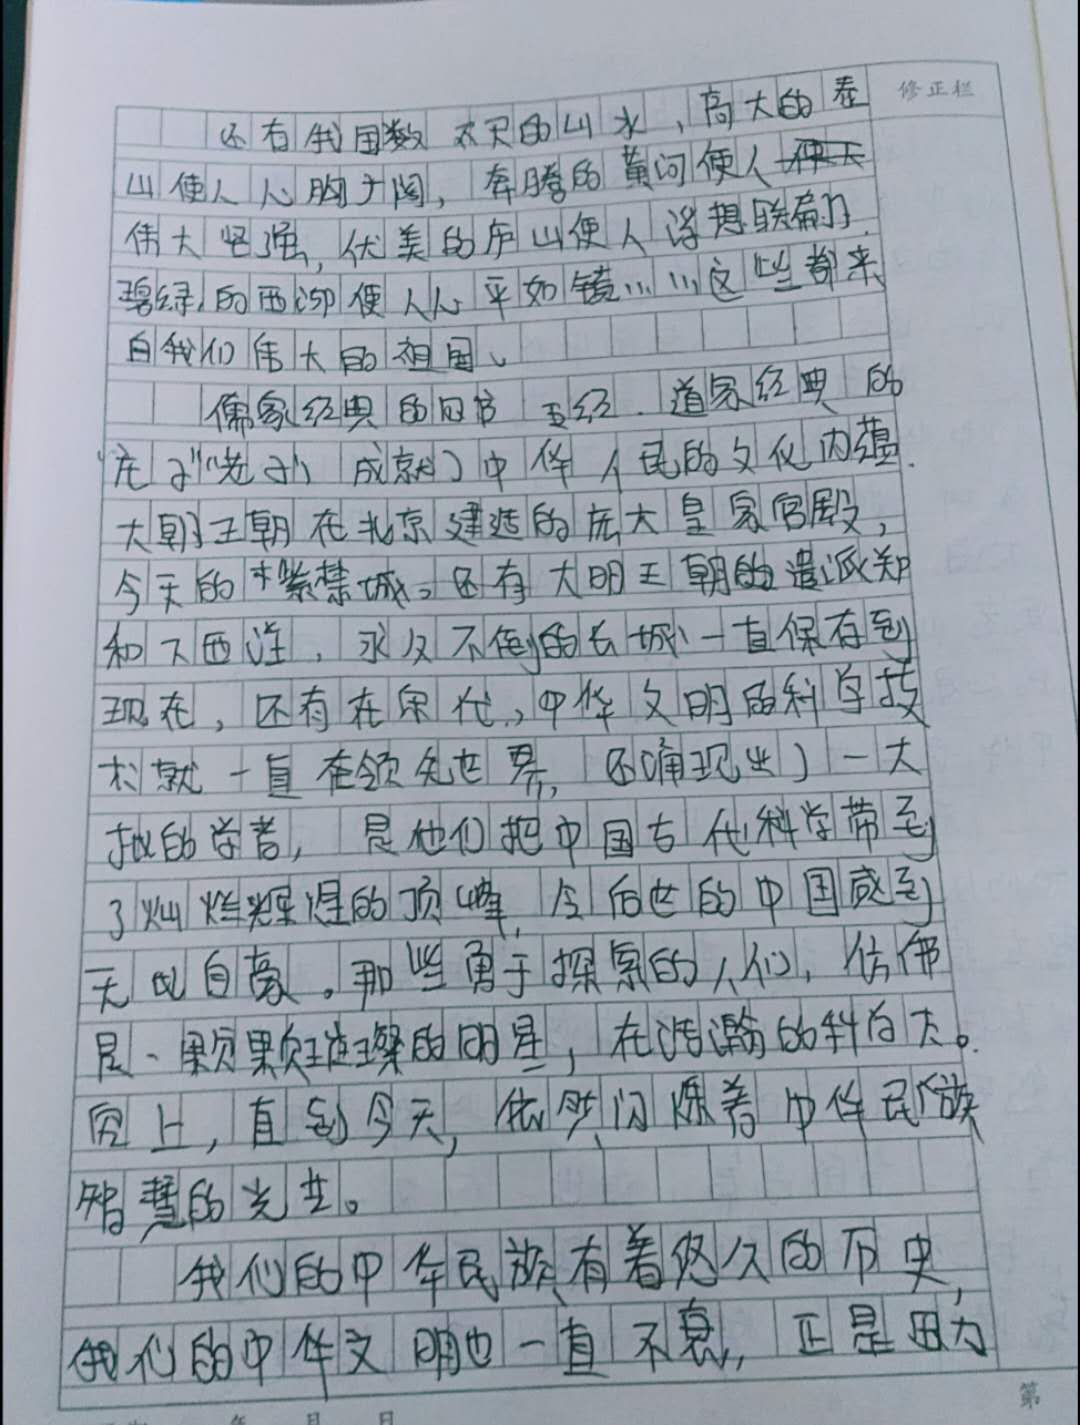 修正栏
还有我国数不尽的山水,高大的泰
山使人心胸广阔,奔腾的黄河使人
伟大坚强,优美的庐山使人浮想联翩,
碧绿的西湖使人心平如镜……这些都来
自我们伟大的祖国、
儒家经典的四书五经.道家经典的
"庄子""老子"成就了中华人民的文化内蕴.
大明王朝在北京建造的庞大皇家宫殿,
今天的紫禁城。还有大明王朝的遣派郑
和下西洋,永久不倒的长城一直保存到
现在,还有在宋代,中华文明的科学技
术就一直在领先世界,还涌现出了一大
批的学者,是他们把中国古代科学带到
了灿烂辉煌的顶峰,令后世的中国感到
无比自豪。那些勇于探索的人们,仿佛
是一颗颗璀璨的明星,在浩瀚的科学天。
穹上,直到今天,依然闪烁着中华民族
智慧的光芒。
我们的中华民族有着悠久的历史,
我们的中华文明也一直不衰,正是因为
第
年 月 日